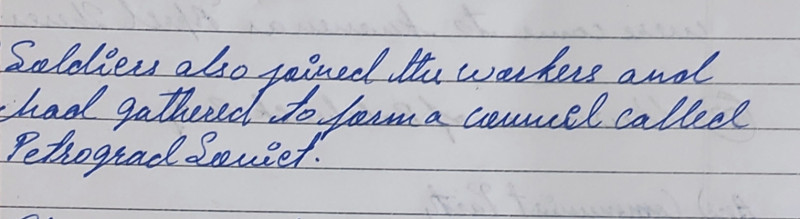 Soldiers also joined the workers and
had gathered to form a council called
Petrograd Soviet.